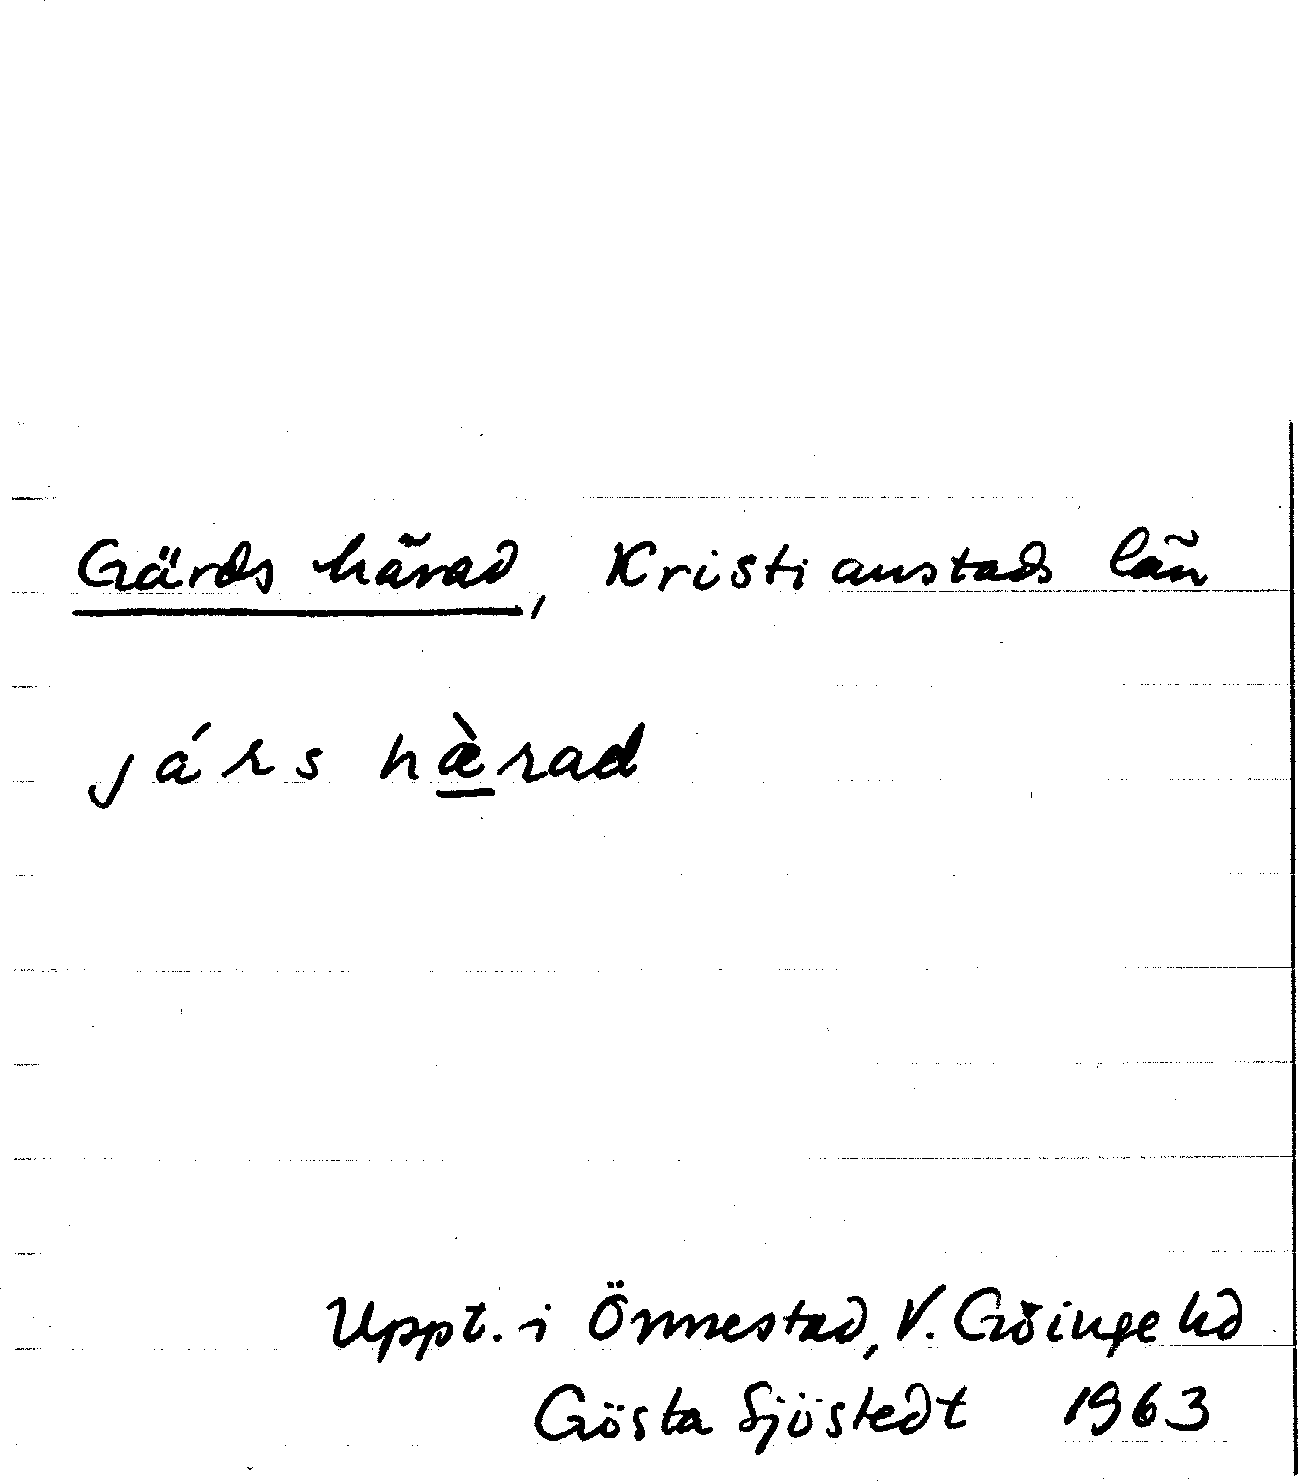 Gärds härad, Kristianstads län
járs hæ̀rad
Uppt. i Önnestad, V. Göinge hd
Gösta Sjöstedt 1963